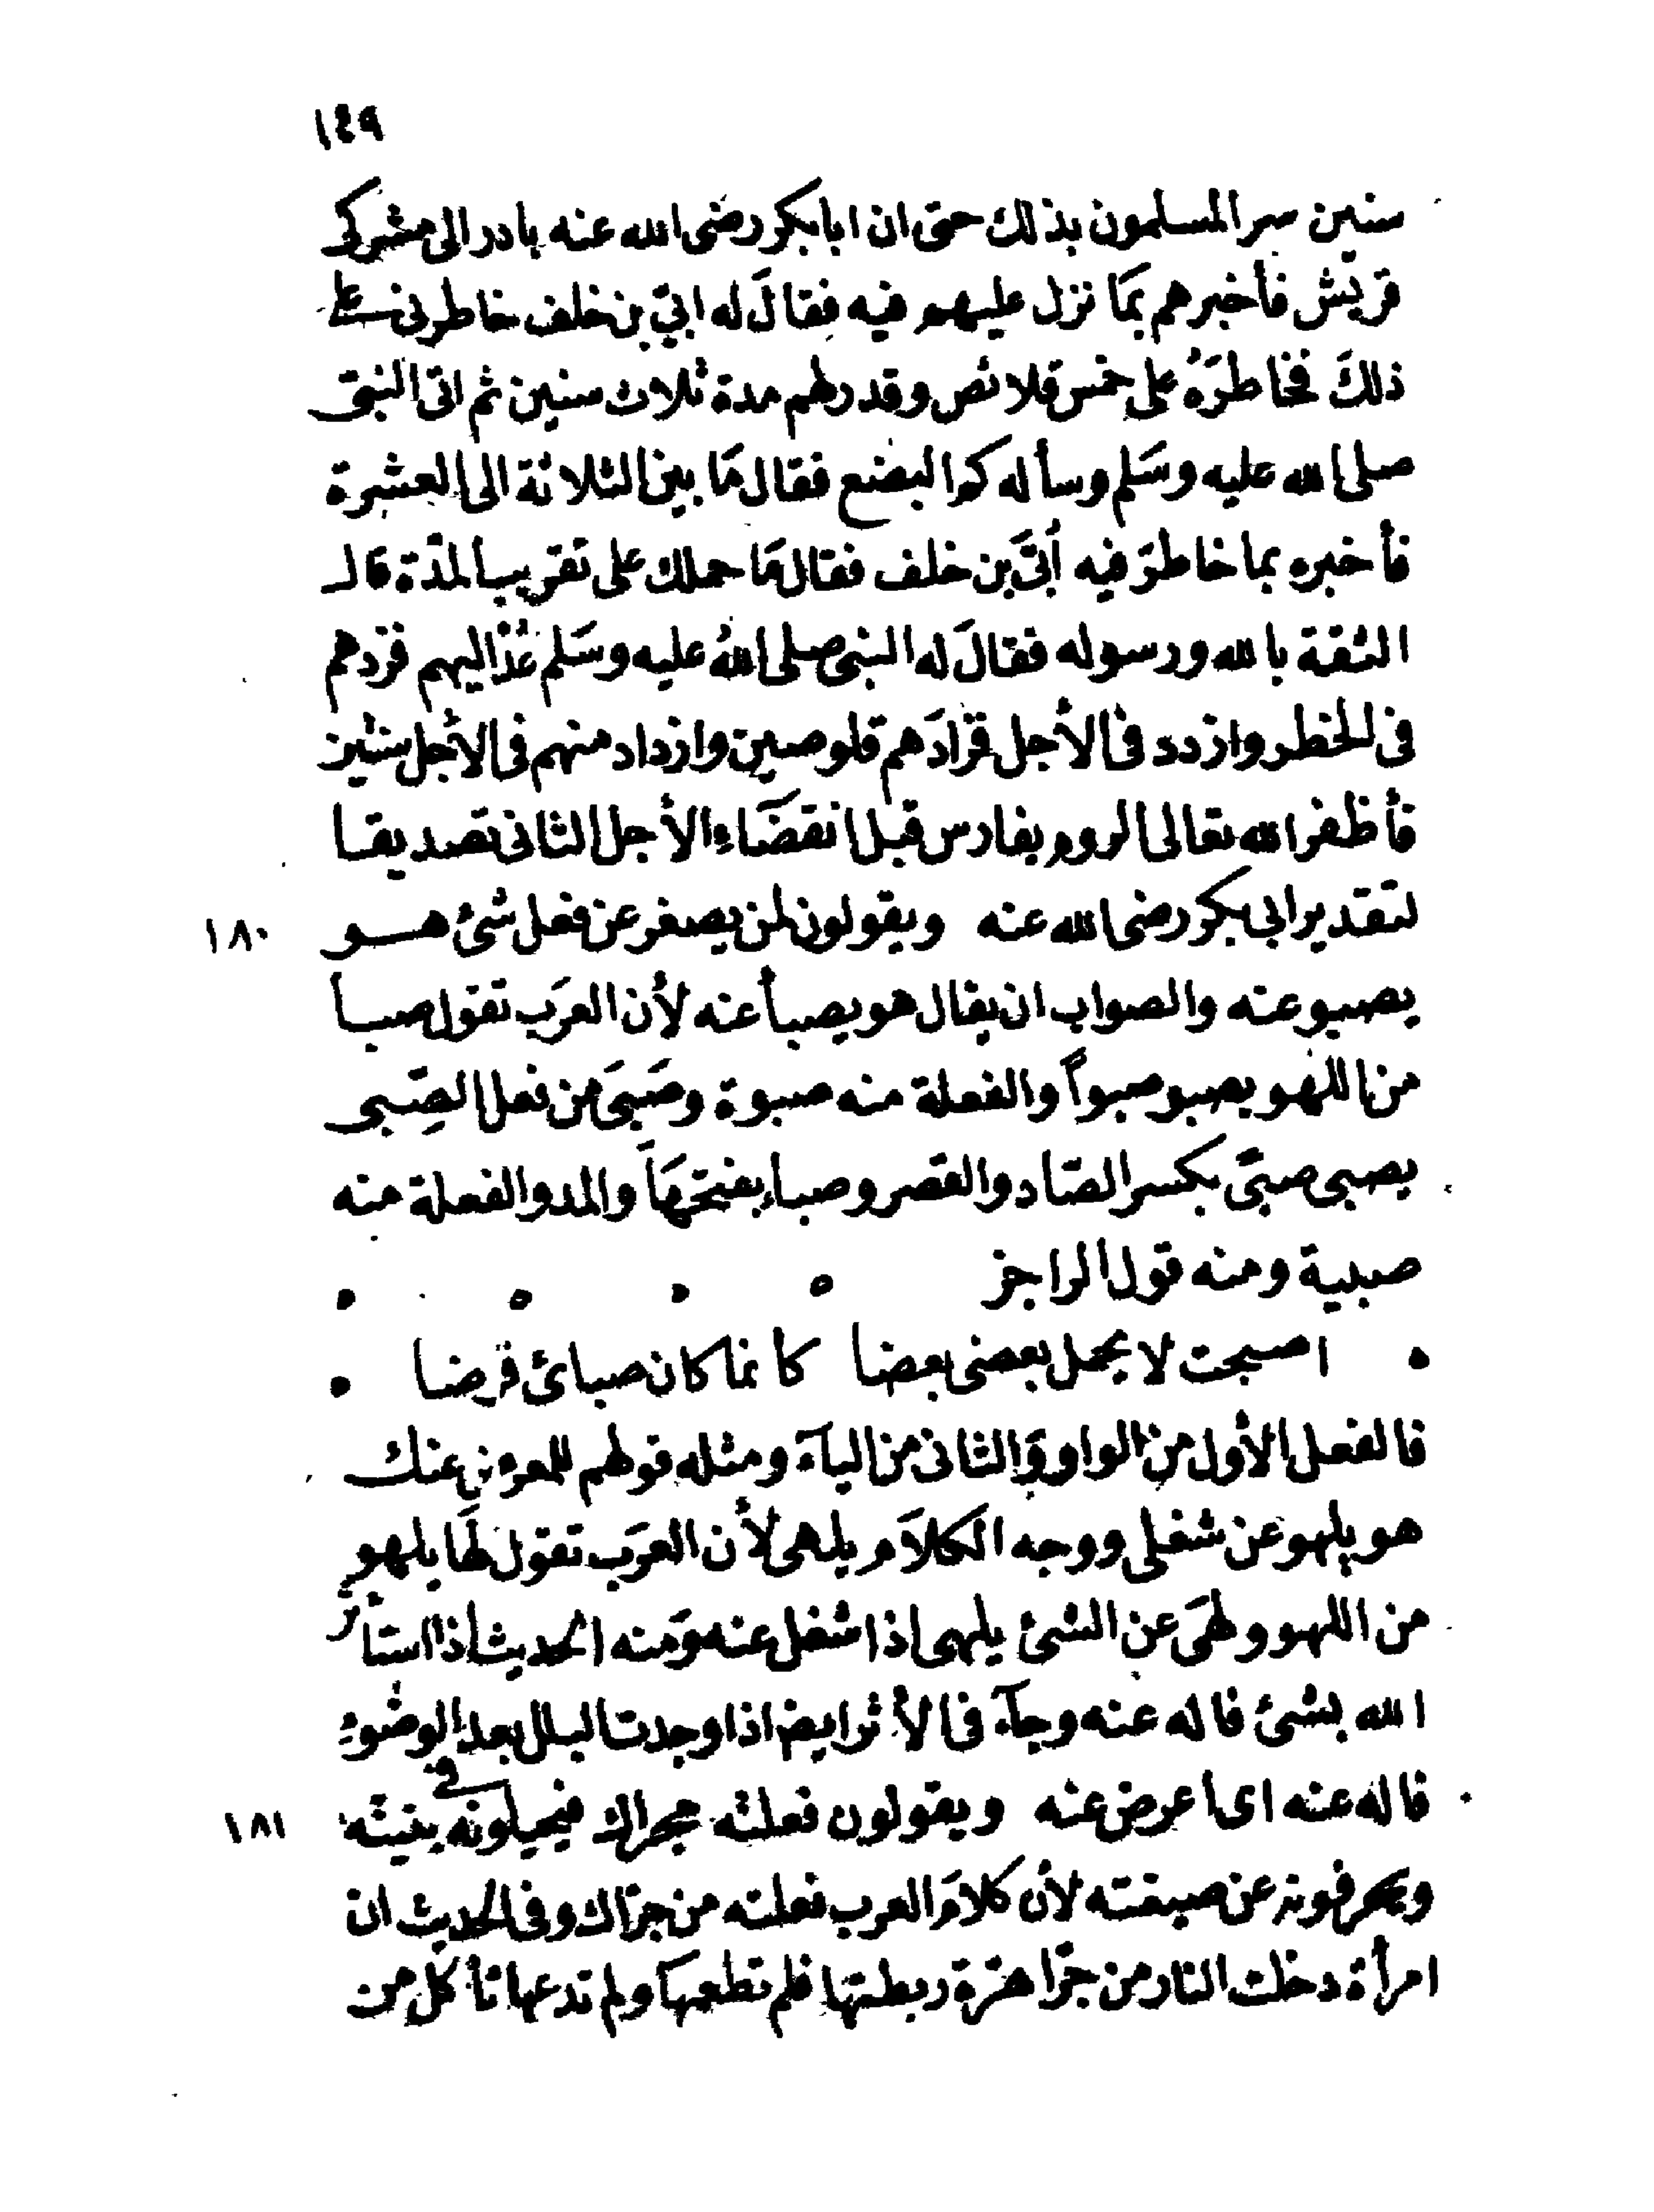 ١٤٩
سنين سر المسلمون بذلك حتى ان ابا بكر رضى الله عنه بادر الى مشركى
قريش فأخبرهم بمَا نزل عليهم فيه فقالَ له ابيّ بن خلف خاطرنى على
ذلكَ فخاطرَهُ على خمس قلائص وقدر لهم مدة ثلاث سنين ثم اتى النبى
صلى الله عليه وسَلم وسأله كم البضع فقال مَا بين الثلاثة الى العشرة
فأخبره بما خاطرَ فيه أبىَّ بن خلف فقال مَا حملك على تقريب المدّة قال
الثقة بالله ورسوله فقالَ له النبى صلى اللهُ عليه وسَلم عُدْ اليهم فزدهم
فى الخطر وازدد فى الأجل فزادَهم قلوصين وازداد منهم فى الأجل سنتين
فأظفر الله تعالى الروم بفارس قبل انقضَاءِ الأجل الثانى تصديقا
لتقدير ابى بكر رضى الله عنه ويقولون لمن يصغر عن فعل شئ هو ١٨٠
يصبو عنه والصواب ان يقال هو يصبأ عنه لأن العرَب تقول صبا
من اللهو يصبو صبواً والفعلة منه صبوة وصَبىَ من فعل الصِّبى
يصبى صبىً بكسر الصّاد والقصر وصباء بفتحهَا والمد والفعلة منه
صبية ومنه قول الراجز
اصبحت لا يحمل بعضى بعضا كانما كان صبائى قرضا
فالفعل الأول من الواو وَالثانى من اليآء ومثله قولهم للمعرض عنك
هو يلهو عن شغلى ووجه الكلاَم يلهى لأن العرَب تقول لهَا يلهو
من اللهو ولهىَ عن الشئ يلهى اذا شغل عنه وَمنه الحديث اذا استأثر
الله بشئ فاله عنه وجآء فى الأثر ايضا اذا وجدت البلل بعد الوضوءِ
فاله عنه اى أعرض عنه ويقولون فعلته مجراك فيحيلونه فى بنيته ١٨١
ويحرفونه عن صيغته لأن كلامَ العرب فعلته من جرّاك وفى الحديث ان
امرأة دخلت النار من جرّا هرّة ربطتها فلم تطعمهَا ولم تدعها تأكل من